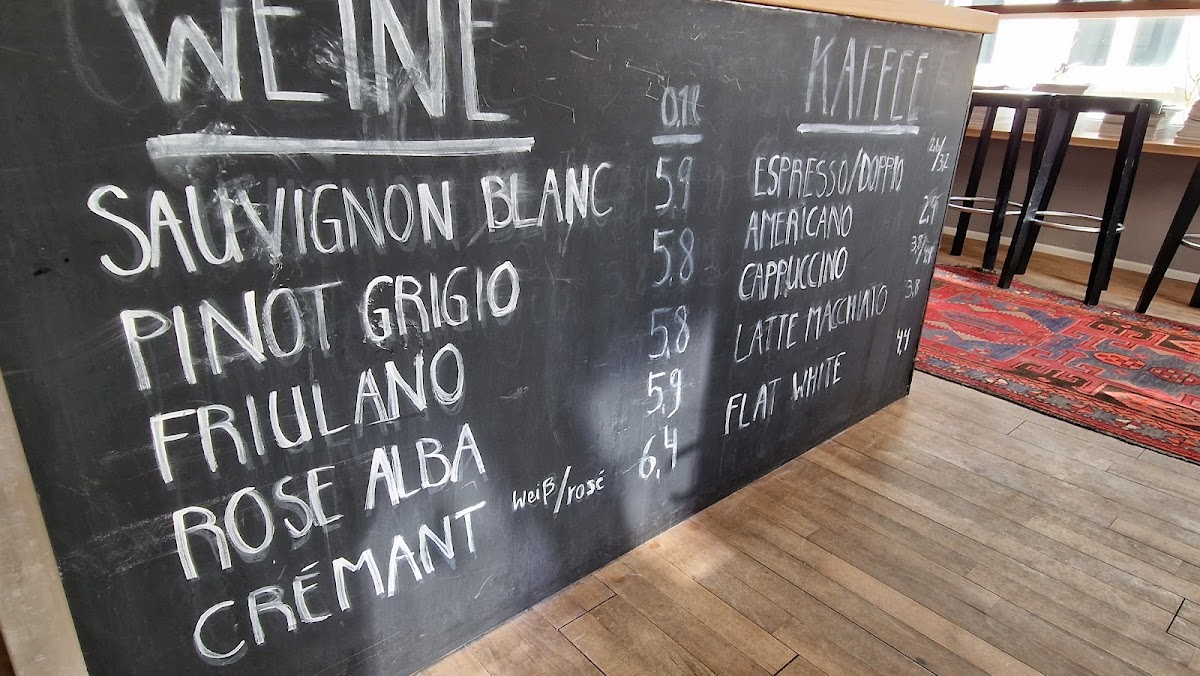 WEINE
0,1l
SAUVIGNON BLANC 5,9
PINOT GRIGIO 5,8
FRIULANO 5,8
ROSE ALBA 5,9
CRÉMANT weiß/rosé 6,4
KAFFEE
ESPRESSO/DOPPIO
AMERICANO 2,9
CAPPUCCINO
LATTE MACCHIATO 3,8
FLAT WHITE 4,4